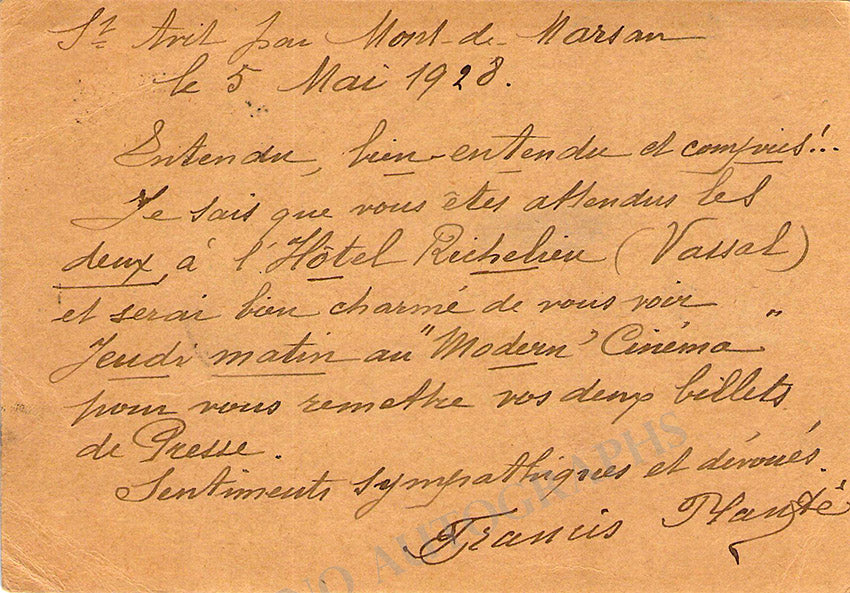 St Avit par Mont-de-Marsan
le 5 Mai 1928.
Entendu, bien-entendu et compris!..
Je sais que vous êtes attendus les
deux, à l'Hôtel Richelieu (Vassal)
et serai bien charmé de vous voir
Jeudi matin au "Modern' Cinéma"
pour vous remettre vos deux billets
de Presse.
Sentiments sympathiques et dévoués.
Francis Planté
NO AUTOGRAPHS